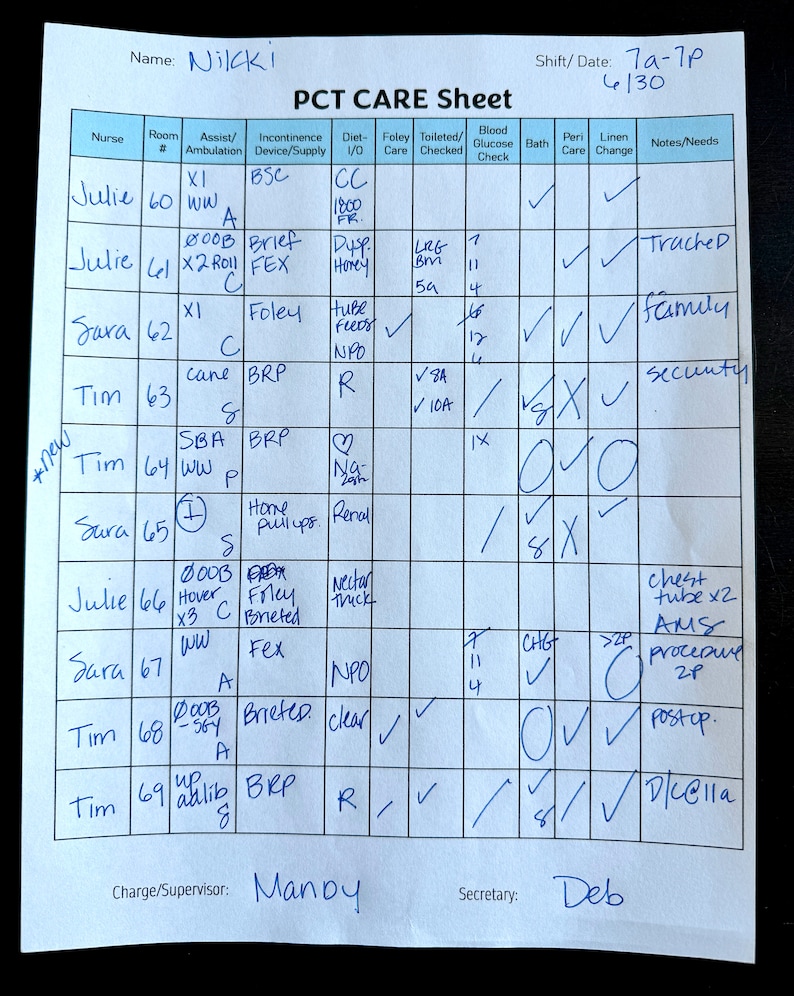 Name: Nikki
Shift/ Date: 7a-7p
6/30
PCT CARE Sheet
Nurse Room # Assist/ Ambulation Incontinence Device/Supply Diet- I/O Foley Care Toileted/ Checked Blood Glucose Check Bath Peri Care Linen Change Notes/Needs
Julie 60 X1 WW A BSC CC 1800 FR. ✓ ✓
Julie 61 ØOOB X2 Roll C Brief FEX Dysp. Honey LRG Bm 5a 7 11 4 ✓ ✓ Trached
Sara 62 X1 C Foley tube Feeds NPO ✓ 6 12 6 ✓ ✓ ✓ family
Tim 63 cane S BRP R ✓ 8A ✓ 10A / ✓ S X ✓ security
*new
Tim 64 SBA WW P BRP ♡ Na- 2gm 1X O ✓ O
Sara 65 I S Home pullups. Renal / ✓ S X ✓
Julie 66 ØOOB Hover X3 C Foley Briefed Nectar thick chest tube x2 AMS
Sara 67 WW A Fex NPO 7 11 4 CHG ✓ >2P O procedure 2P
Tim 68 ØOOB A Briefed. clear ✓ ✓ O ✓ ✓ postop.
Tim 69 up adlib S BRP R / ✓ / ✓ S / ✓ D/C@11a
Charge/Supervisor: Mandy
Secretary: Deb